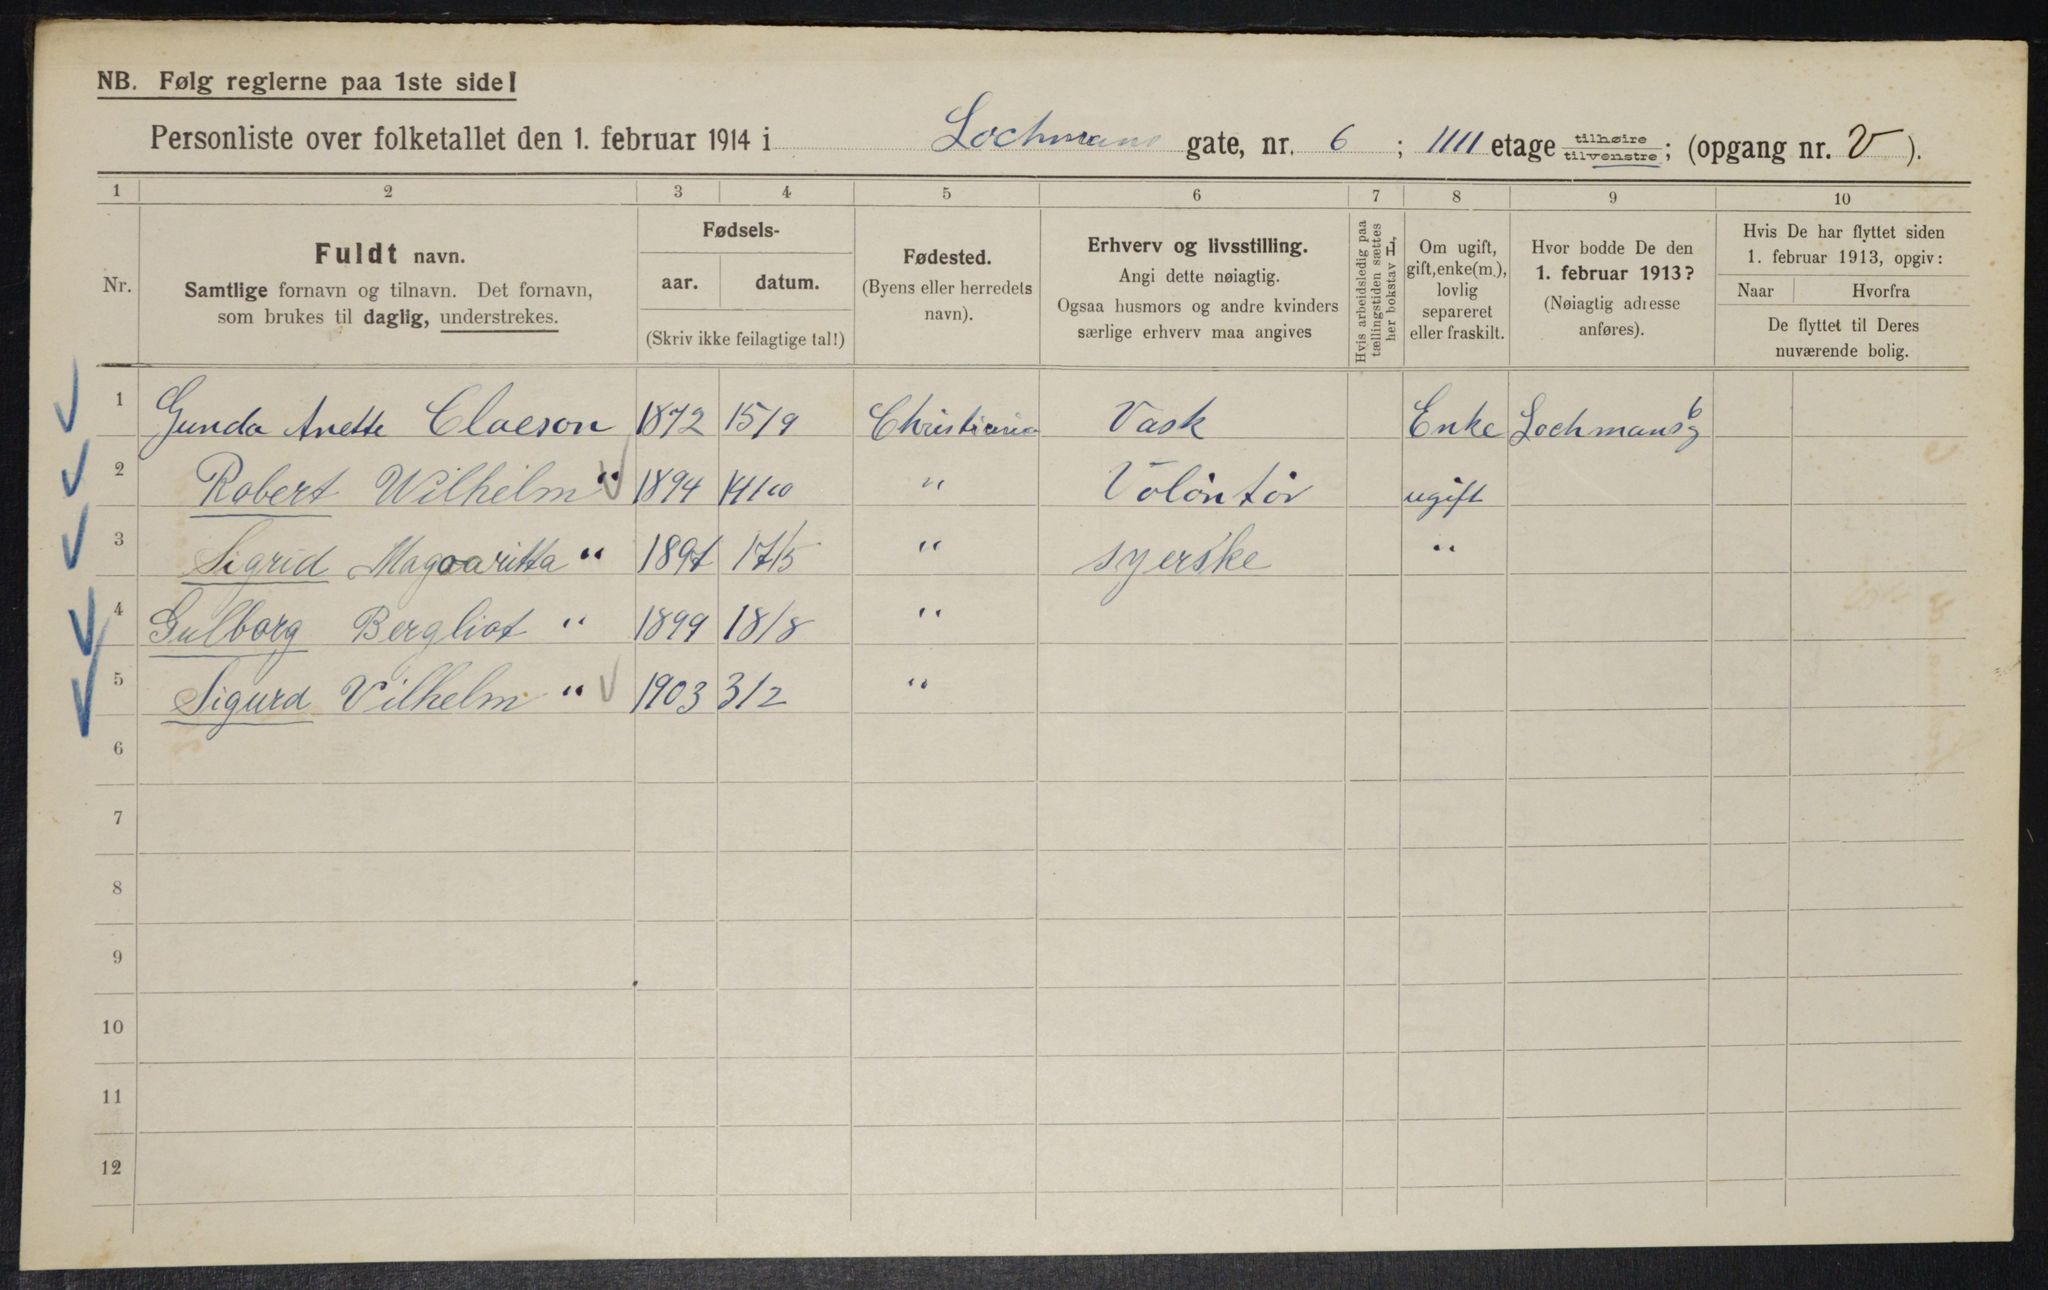 NB. Følg reglerne paa 1ste side!
Personliste over folketallet den 1. februar 1914 i Lochmans gate, nr. 6 ; IIII etage tilhøire tilvenstre ; (opgang nr. V ).
1 2 3 4 5 6 7 8 9 10
Nr.
Fuldt navn.
Samtlige fornavn og tilnavn. Det fornavn,
som brukes til daglig, understrekes.
Fødsels-
aar. datum.
(Skriv ikke feilagtige tal!)
Fødested.
(Byens eller herredets
navn).
Erhverv og livsstilling.
Angi dette nøiagtig.
Ogsaa husmors og andre kvinders
særlige erhverv maa angives
Hvis arbeidsledig paa
tællingstiden sættes
her bokstav L.
Om ugift,
gift, enke(m.),
lovlig
separeret
eller fraskilt.
Hvor bodde De den
1. februar 1913?
(Nøiagtig adresse
anføres).
Hvis De har flyttet siden
1. februar 1913, opgiv:
Naar Hvorfra
De flyttet til Deres
nuværende bolig.
1 Gunda Anette Claeson 1872 15/9 Christiania Vask Enke Lochmansg 6
2 Robert Wilhelm " 1894 14/10 " Volontør ugift
3 Sigrid Magaaritta " 1897 17/5 " syerske "
4 Gulborg Bergliot " 1899 18/8 "
5 Sigurd Vilhelm " 1903 3/2 "
6
7
8
9
10
11
12